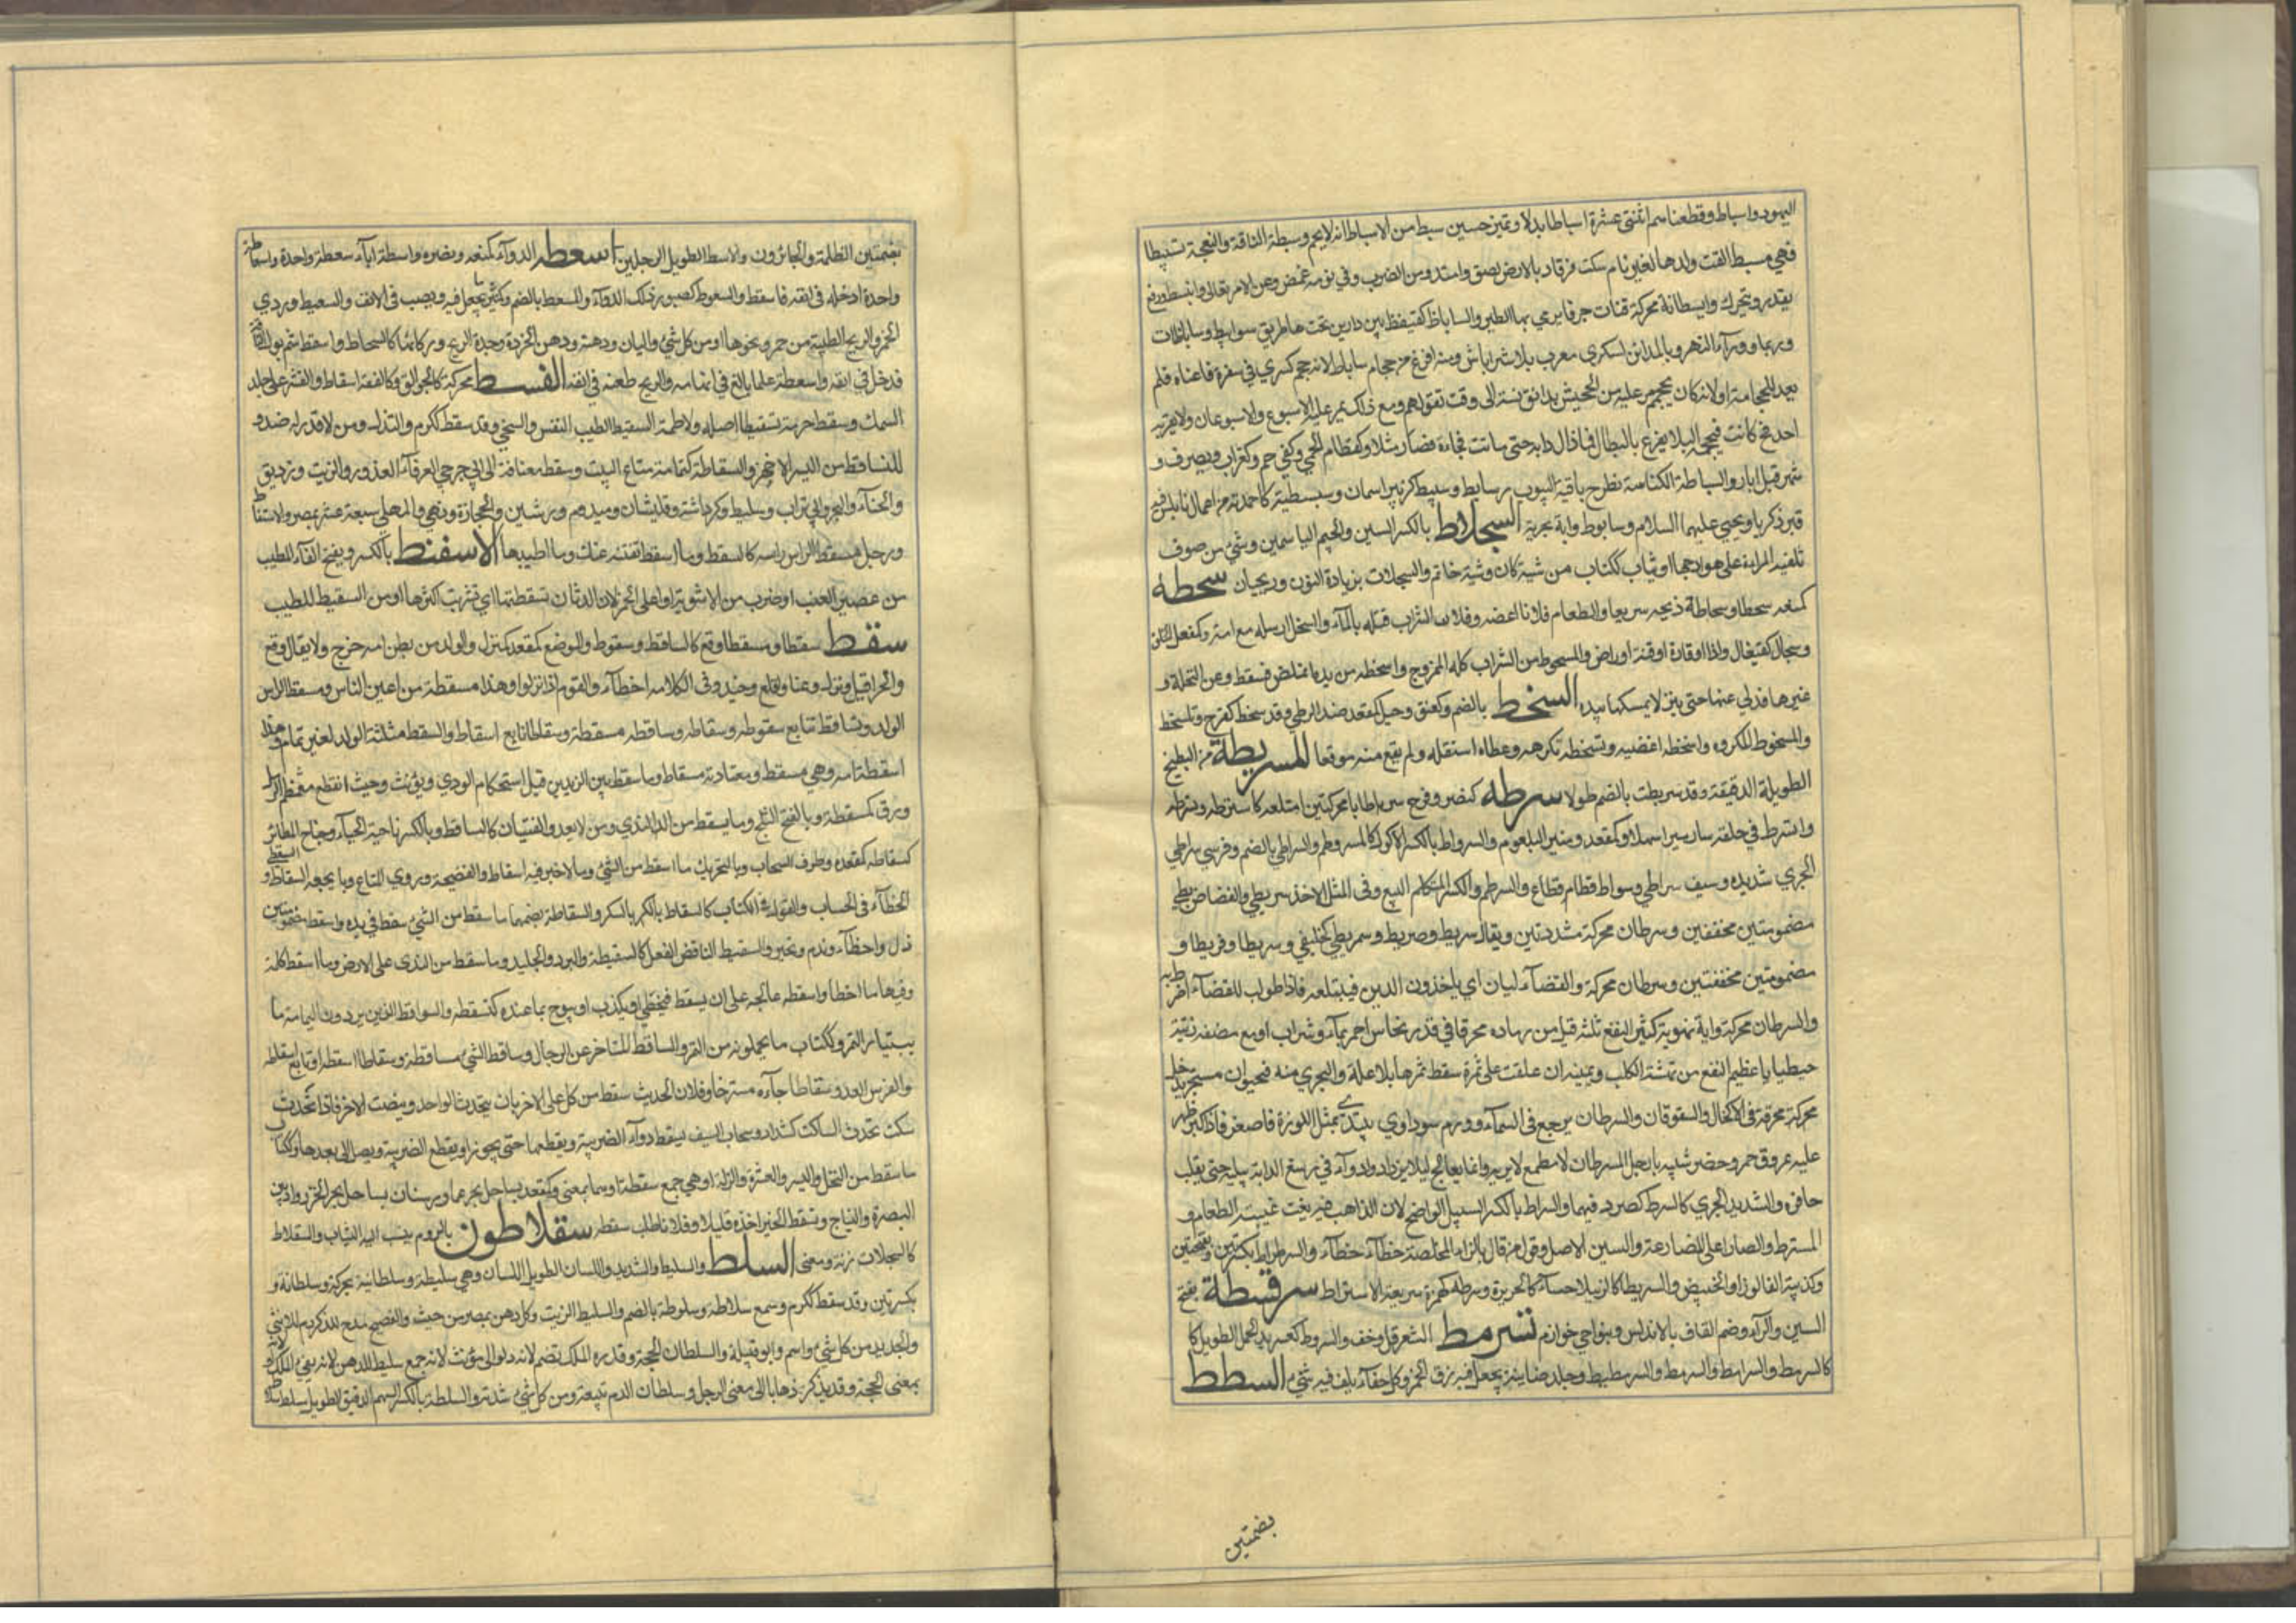 اليهود واسباط وقطعناهم اثنتي عشرة اسباطا بدلا وتميز حسين سبط من الاسباط انه لايجم وسبطة الناقة والنعجة تسبيطا
فهي مسبط القت ولدها لغير تمام سكت فرقا وبالارض لصق وامتد من الضرب وفي نومه غمض وعن الامر تغابى وانبسط ووقع
يقدر يتحرك وايسطانة محركة قنات جوفا يرمي بها الطير والساباط سقيفة بين دارين تحتها طريق سوابيط وساباطات
وربما وورآء النهر وبالمدائن لكسرى معرب بلاش اباد ومنه افرغ من حجام ساباط لانه حجم كسرى في سفرة فاغناه فلم
يعد للحجامة او لانه كان يحجم من عليه من الجيش بدانق نسئة الى وقت تقولهم ومع ذلك يمر عليه الاسبوع والاسبوعان ولا يقربه
احد فح كانت فيحجم امه لئلا يقرع بالبطالة فما زال دابه حتى ماتت فجاءة فصار مثلا وكقطام الحمي وكغراب ويصرف و
شهر قبل ادار والسباطة الكناسة تطرح بافنية البيوت وسابط وسبيط كزبير اسمان وسبسطية كاحمدية من اعمال نابلس فيه
قبر ذكريا ويحيى عليهما السلام وسابوط دابة بحرية السجلاط بالكسر السين والجيم الياسمين وشيء من صوف
تلقيه المراة على هودجها او ثياب كتان موشية كان وشيه خاتم والسجلات بزيادة النون وريحيان سحطه
كمنعه سحطا وسحاطة ذبحه سريعا والطعام فلانا اغصه وفلان الشراب قتله بالمآء والسخل ارسله مع امه وكمفعل الحلق
والمسحوط من الشراب كله الممزوج وانسحط من يده املص فسقط وعن النخلة و
غيرها تدلى عنها حتى ينزل لا يمسكها بيده السخط بالضم وكعنق وجبل وكمقعد ضد الرضى وقد سخط كفرح وتسخط
والمسخوط المكروه واسخطه اغضبه وتسخطه تكرهه وعطاه استقله ولم يقع منه موقعا المسربطة من البطيخ
الطويلة الدقيقة وقد سربطت بالضم طولا سرطه كنصر وفرح سرطا بامحركتين ابتلعه كاسترطه وتسرطه
وانسرط في حلقه سار سيرا سهلا وكمقعد ومنبر البلعوم والسرواط بالكسر الاكول كالمسروط والسراطي بالضم وفرس سراطي
الجري شديده وسيف سراطي وسراط قطاع والسرطم بالكسر المتكلم البليغ وفي المثل الاخذ سريطي والقضاء ضريطي
مضمومتين مخففتين وسرطان محركة مشددتين ويقال سريط وضريط وسريطي كخليفي وسريطا وضريطا و
مضمومتين مخففتين وسرطان محركة والقضآء ليان اي ياخذون الدين فيبتلعه فاذا طولب للقضآء اضرط به
والسرطان محركة دابة نهرية كثير النفع ثلثة مثاقيل من رماده محرقا في قدر نحاس احمر بمآء وشراب او مع نصفه زنبة
جنطيانا عظيم النفع من نهشة الكلب وعينيه ان علقت على شجرة سقط ثمرها بلا علة والبحري منه فحيوان مستحجر يدخل
محركة محرقه في الاكحال والسفوفات والسرطان برج في السمآء وورم سوداوي يبتدئ بمثل اللوزة فاصغر فاذا كبر ظهر
عليه عروق حمر وخضر شبيه بارجل السرطان لا مطمع لابريه وانما يعالج لئلا يزداد ودآء في رسغ الدابة ييبسه حتى يقلب
حافره والشديد الجري كالسرط كصرد فيهما والسراط بالكسر السبيل الواضح لان الذاهب فيه يغيب غيبة الطعام و
المسترط والصاد اعلى للمضارعة والسين الاصل وقول من قال بالزاء المخلصة خطآء خطآء والسرطراط بكسرتين وبفتحتين
وكزبير الفالوذ او الخبيص والسريطا كالرتيلاء حساء كالحريرة وسرطه كهمزة سريع الاستراط سرقسطة بفتح
السين والرآء وضم القاف بالاندلس وبنواحي خوارزم تسرمط الشعر قل وخف والسروط كعصفور الجمل الطويل كا
كالسرمط والسرامط والسرمط والسرمطيط وجلد ضائنة يجعل فيه زق الخمر وكل خفآء يلف فيه شيء السطط
بضمتين
بضمتين الظلمة والجائرون والاسط الطويل الرجلين اسعطه الدوآء كمنعه ونصره واسعطه اياه سعطة واحدة واسعاطة
واحدة ادخله في انفه فاستعط والسعوط كصبور ذلك الدوآء والمسعط بالضم وكمنبر ما يجعل فيه ويصب في الانف والسعيط دردي
الخمر والريح الطيبة من خمر ونحوها او من كل شيء والبان ودهنه ودهن الخردل وحدة الريح
قد دخل في انفه واسعطه علما بالغ في افهامه والريح طعنه في انفه السفط محركة كالجوالق او كالقفة اسقاط والقشر على جلد
السمك وسفط حوضه تسفيطا اصلحه ولاطه السفيط الطيب النفس والسخي وقد سفط ككرم والنذل ومن لا قدر له ضد و
المتساقط من البسر الاخضر والسفاطة كثمامة متاع البيت وسفط مضافة الى ابي جرجى العرفآء القدور والزيت وزريق
والحنآء والبحر وابي تراب وسليط وكرداسة وقليشان وميدوم ورشين والحجارة ونهي والمهلبي سبعة عشر بمصر والاستفاط
ورجل مسفط الراس راسه كالسفط وما اسفط نفسه عنك وما اطيبها الاسفنط بالكسر وبفتح الفآء المطيب
من عصير العنب او ضرب من الاشربة او اعلى الخمر لان الدنان تسفطتها اي تشربت اكثرها او من السفيط للطيب
سقط سقوطا ومسقطا وقع كالساقط وسقوط والموضع كمقعد ومنزل والولد من بطن امه خرج ولا يقال وقع
والحر اقبل ونزل وعنا اقلع وضد وفي الكلامه اخطآء والقوم الي نزلوا وهذا مسقطة من اعين الناس ومسقط الراس
الولد وتساقط تتابع سقوطه وسقاطه وساقطه مسقطة وسقاطا تابع اسقاطه والسقط مثلثة الولد لغير تمام وقد
اسقطه امه وهي مسقط ومعتادته مسقاط وما سقط بين الزندين قبل استحكام الورى ويؤنث وحيث انقطع معظم الرمل
ورق كمسقطه وبالفتح الثلج وما يسقط من الندى ومن لا يعد في الفتيان كالساقط وبالكسر ناحية الخبآء وجناح الطائر
كسقاطه كمقعده وطرف السحاب وبالتحريك ما اسقط من الشيء وما لا خير فيه اسقاط والفضيحة وردي المتاع وبايعه السقاط و
السقطي
الخطآء في الحساب والقول وفي الكتاب كالسقاط بالكسر والسقاطة بضمهما ما سقط من الشيء سقط في يده واسقط مضمومتين
ذل واخطآء وندم وتحير والسقيط الناقص العقل كالسقيطة والبرد والجليد وما سقط من الندى على الارض وما اسقط كلمة
وفيها ما اخطا واسقطه عالجه على ان يسقط فيخطئ او يكذب او يبوح بما عنده كتسقطه والسواقط الذين يردون اليمامة ما
لامتيار التمر وككتاب ما يحملونه من التمر والساقط المتاخر عن الرجال وساقط الشيء مساقطة وسقاطا اسقطه او تابع اسقاطه
والفرس العدو سقاطا جآءه مسترخا وفلان الحديث سقط من كل على الاخر بان يتحدث الواحد وينصت الاخر فاذا تحدث
سكت تحدث الساكت كشداد وسحاب السيف يسقط ورآء الضريبة ويقطعها حتى يجوز او يقطع الضريبة ويصل الى بعدها وككتاب
ما سقط من النخل والبسر والعثرة والزلة او هي جمع سقطة او هما بمعنى وكمقعد بساحل بحر عمان ورستاق بساحل بحر الخزر وواد بين
البصرة والنباج وتسقط الخبر اخذه قليلا وفلانا طلب سقطه سقلاطون بالروم ينسب اليه الثياب والسقلاط
كالسجلات زنة ومعنى السلط والسليط والشديد واللسان الطويل اللسان وهي سليطة وسلطانية محركة وسلطانة و
بكسرتين وقد سلط ككرم وسمع سلاطة وسلوطة بالضم والسليط الزيت وكل دهن عصر من حب والفصيح مدح للذكر ذم للانثى
والحديد من كل شيء واسم وابو قبيلة والسلطان الحجة وقدرة الملك وتضم لامه والوالي مؤنث لانه جمع سليط للدهن لانه يضيء الملك او
بمعنى الحجة وقد يذكر ذهابا الى معنى الرجل وسلطان الدم تبيغه ومن كل شيء شدته والسلطة بالكسر السهم الدقيق الطويل سلط